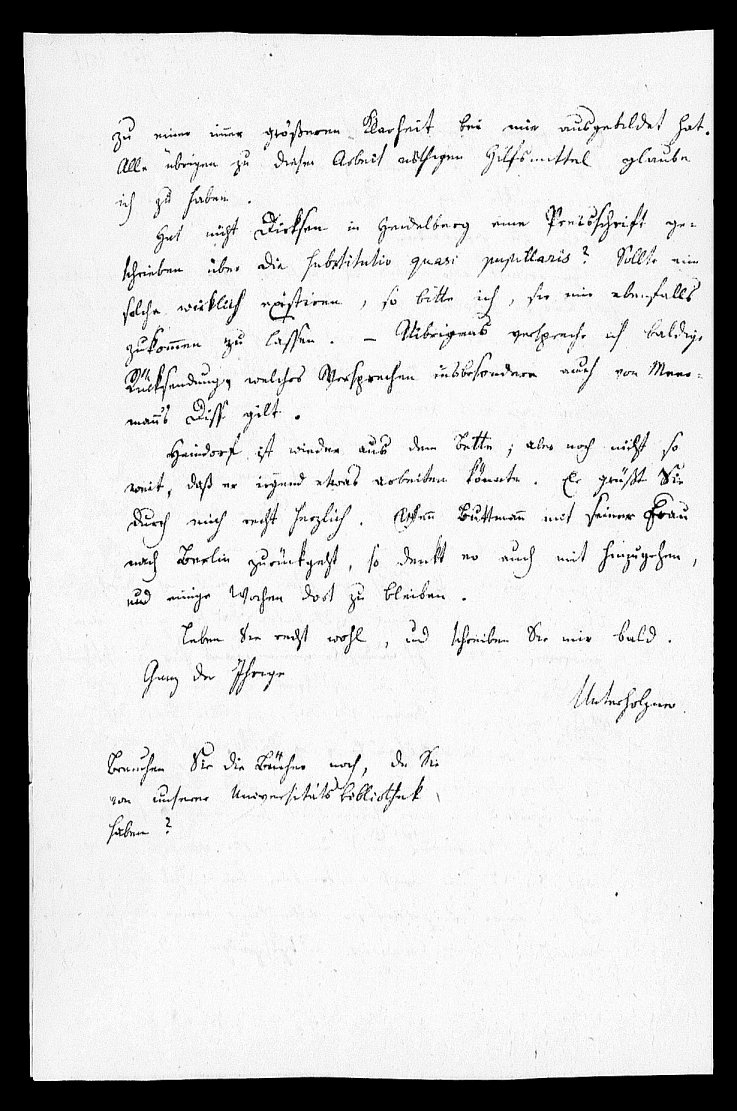 zu einer immer größeren Klarheit bei mir ausgebildet hat.
Alle übrigen zu dieser Arbeit nöthigen Hilfsmittel glaube
ich zu haben.
Hat nicht Dirksen in Heidelberg eine Preisschrift ge-
schrieben über die substitutio quasi pupillaris? Sollte eine
solche wirklich existiren, so bitte ich, sie mir ebenfalls
zukommen zu lassen. – Uibrigens verspreche ich baldige
Rücksendung, welches Versprechen insbesondere auch von Meer-
manns Diss gilt.
Heindorf ist wieder aus dem Bette; aber noch nicht so
weit, daß er irgend etwas arbeiten könnte. Er grüßt Sie
durch mich recht herzlich. Wenn Buttmann mit seiner Frau
nach Berlin zurückgeht, so denkt er auch mit hinzugehen,
und einige Wochen dort zu bleiben.
Leben Sie recht wohl, und schreiben Sie mir bald.
Ganz der Ihrige
Unterholzner.
Brauchen Sie die Bücher noch, die Sie
von unserer Universitätsbibliothek
haben?